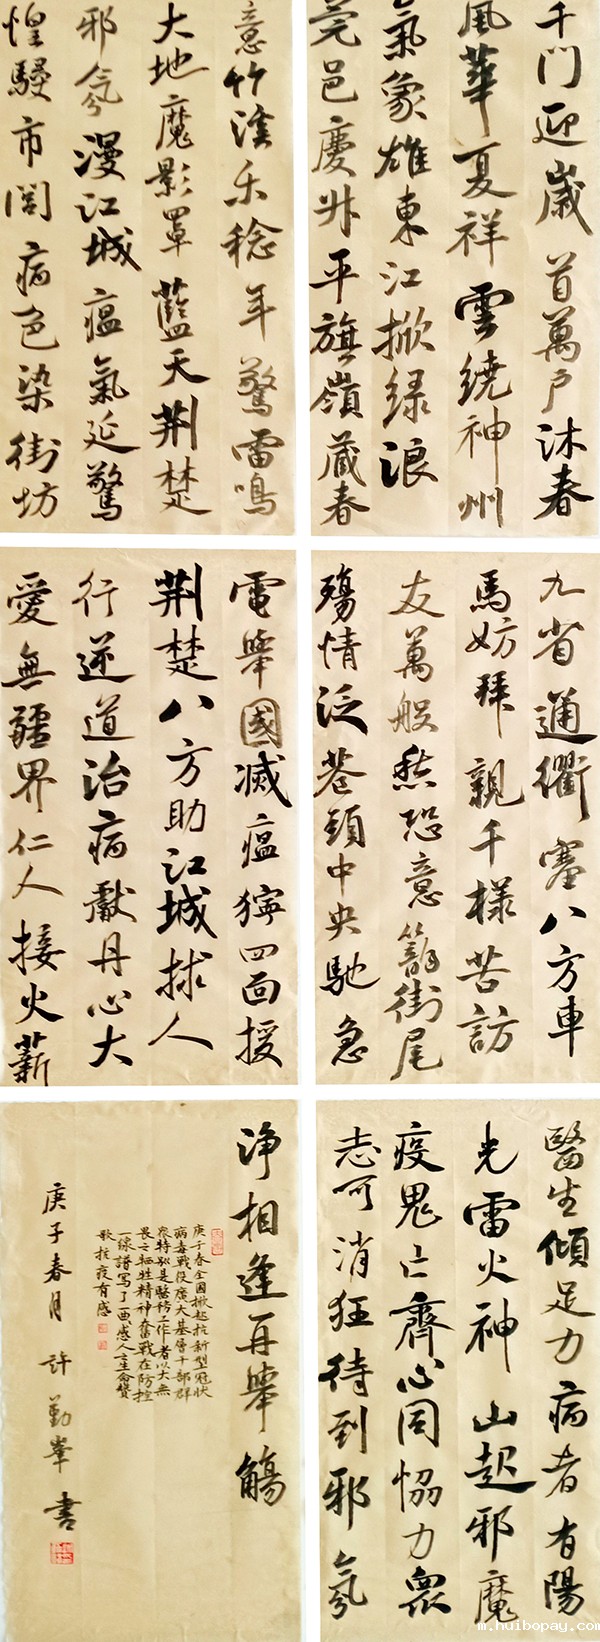 千門迎歲首萬戶沐春
風華夏祥雲繞神州
氣象雄東江掀绿浪
莞邑慶升平旗嶺藏春
意竹溪乐稔年驚雷鳴
大地魔影罩藍天荆楚
邪氛漫江城瘟氣延驚
惶騷市閭病色染街坊
九省通衢塞八方車
馬妨拜親千樣苦訪
友萬般愁恐意籠街尾
殤情泛巷頭中央馳急
電舉國滅瘟獰四面援
荆楚八方助江城捄人
行逆道治病獻丹心大
愛無疆界仁人接火薪
醫生傾足力病者有陽
光雷火神山起邪魔
疫鬼亡齊心同協力眾
志可消狂待到邪氛
净相逢再舉觴
庚子春全國掀起抗新型冠狀
病毒戰役廣大基層干部群
眾特别是醫務工作者以大無
畏之牺牲精神奮戰在防控
一線譜寫了一典感人生命贊
歌抗疫有感
庚子春月許勤峯書
m.huibopay.com